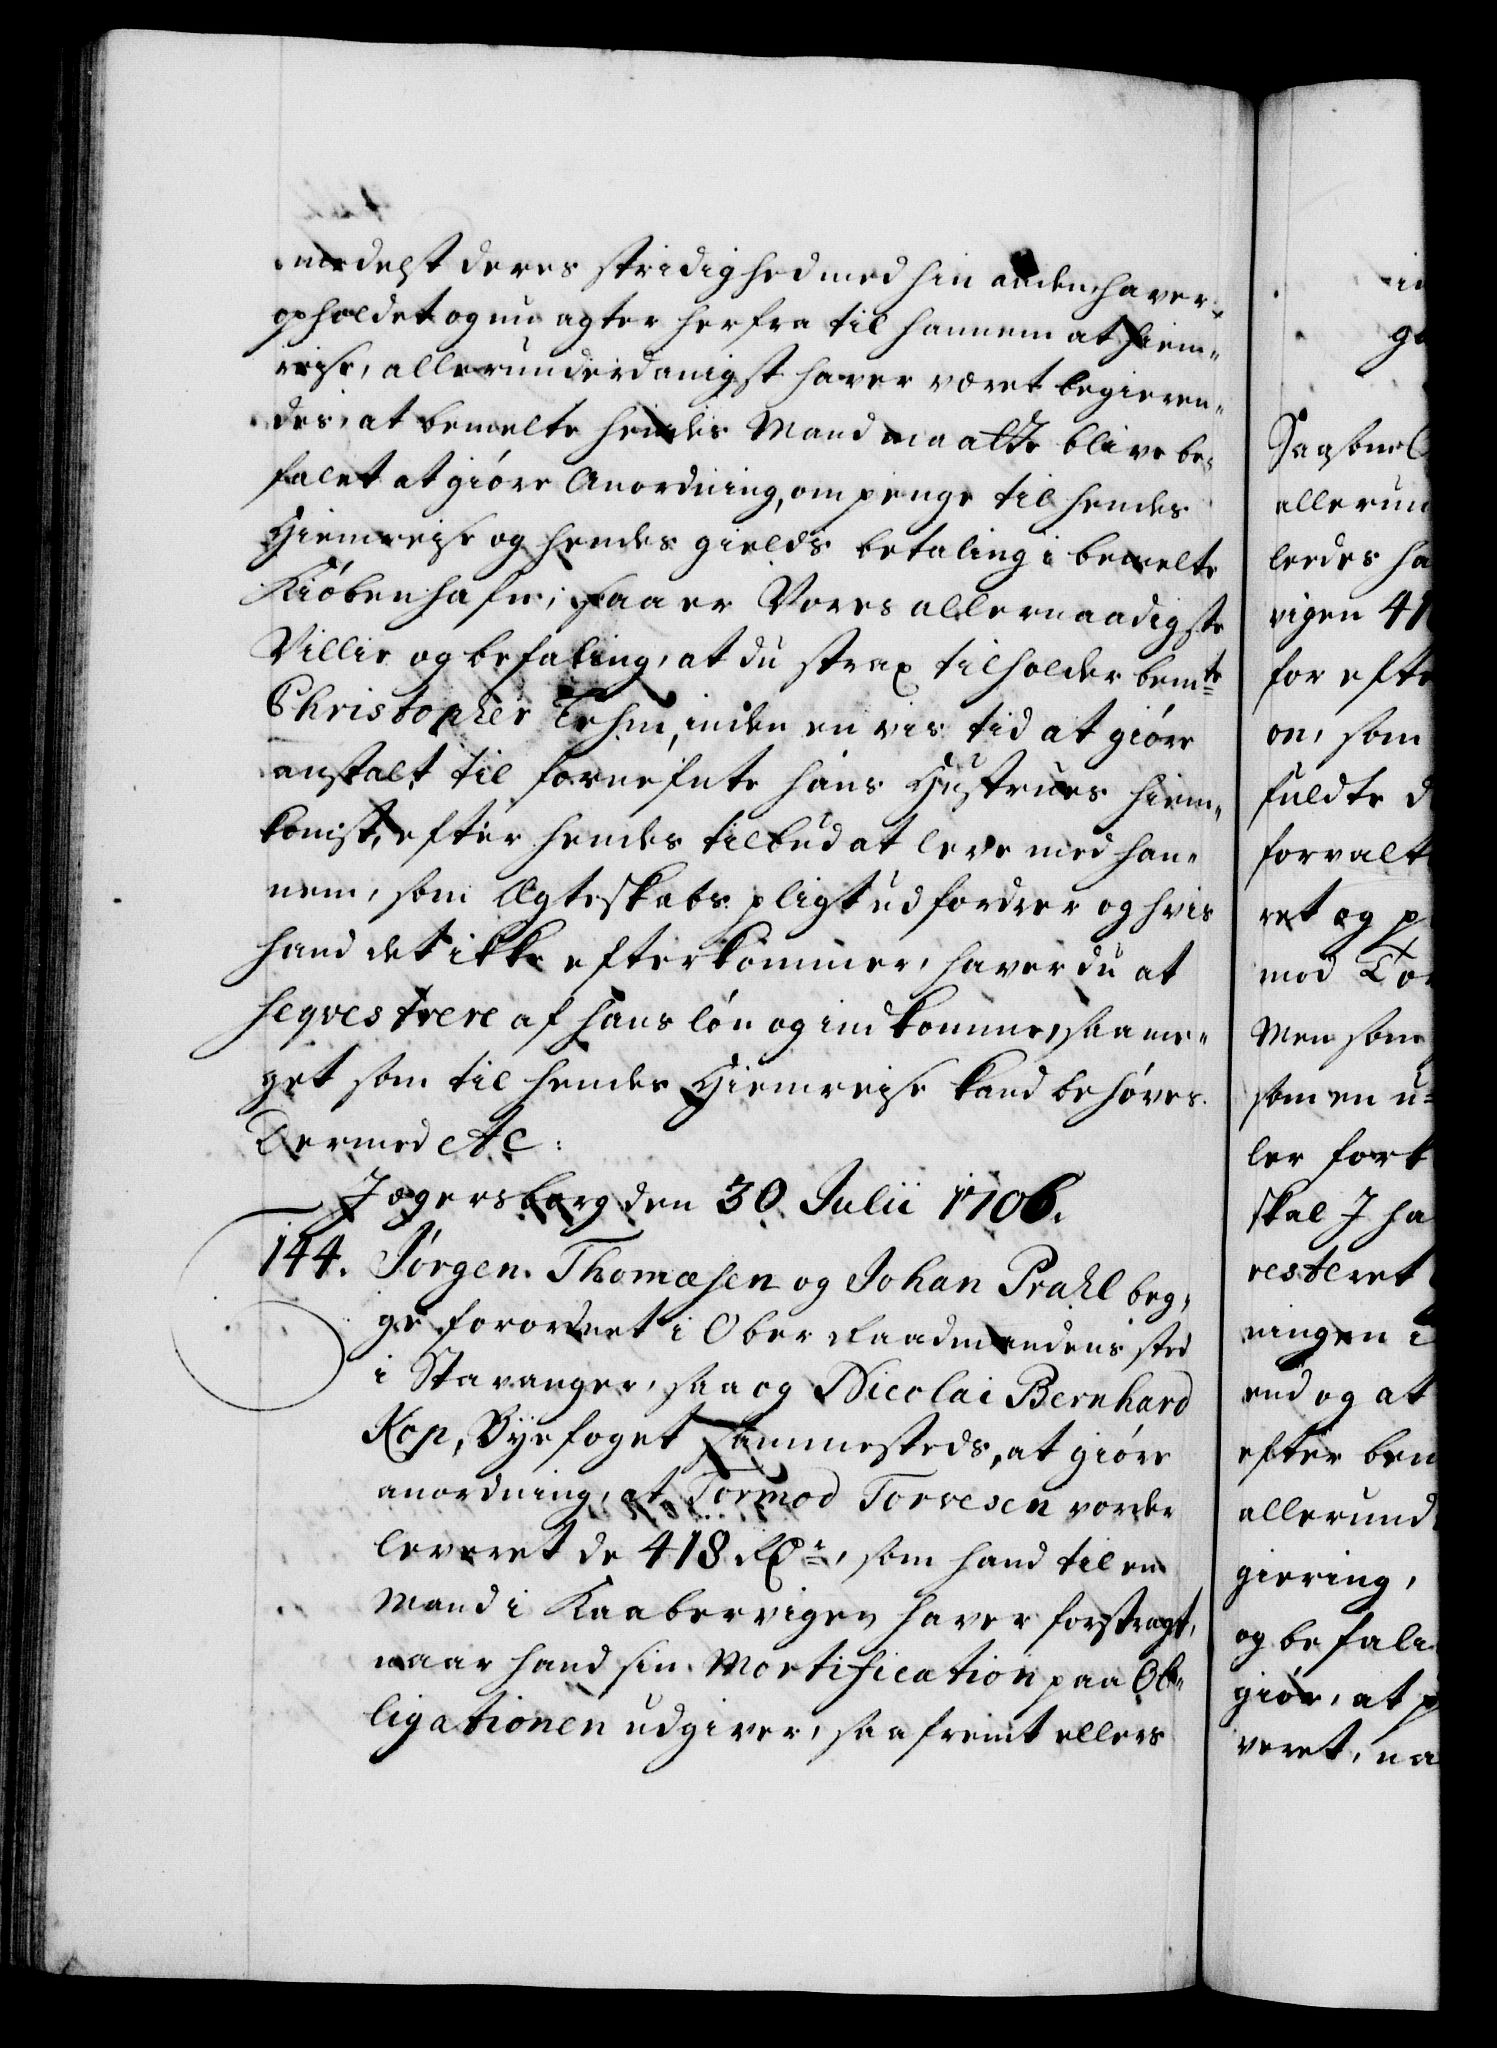 medelst deres stridighed med hin anden haver
opholdet og nu agter herfra til hannem at hiem-
reise, allerunderdanigst haver været begieren-
des, at bemelte hendes Mand maatte blive be-
falet at giöre Anordning, om penge til hendes
Hiemreise og hendes gields betaling i bemelte
Kiöbenhafn; Saa er Vores allernaadigste
Villie og befaling, at du strax tilholder bemte
Christopher Tehm, inden en vis tid at giöre
anstalt til fornefnte hans Hustrues hiem-
komst, efter hendes tilbud at leve med han-
nem, som Ægteskabs pligt udfordrer og hvis
hand det ikke efterkommer, haver du at
seqvestrere af hans lön og indkomme, saa me-
get som til hendes Hiemreise kand behöves.
Dermed etc:
Jægersborg den 30 Julii 1706.
144. Jörgen Thomæsen og Johan Prahl beg-
ge forordnet i Ober Raadmandens sted
i Stavanger, saa og Nicolai Bernhard
Kop, Byefoget sammesteds, at giöre
anordning, at Tormod Torvesen vorder
leveret de 418 Rdr, som hand til en
Mand i Kaabervigen haver forstragt,
naar hand sin Mortification paa Ob-
ligationen udgiver, saafremt ellers
in
ge
allerun
ledes ha
vigen 41
for efte
on, som
fuldte d
forvalt
ret og p
mod Tor
Men som
som en u-
ler fort
skal J ha
resteret
ningen i
end og at
efter bem
allerund
giering,
og befali
giör, at p
veret, na